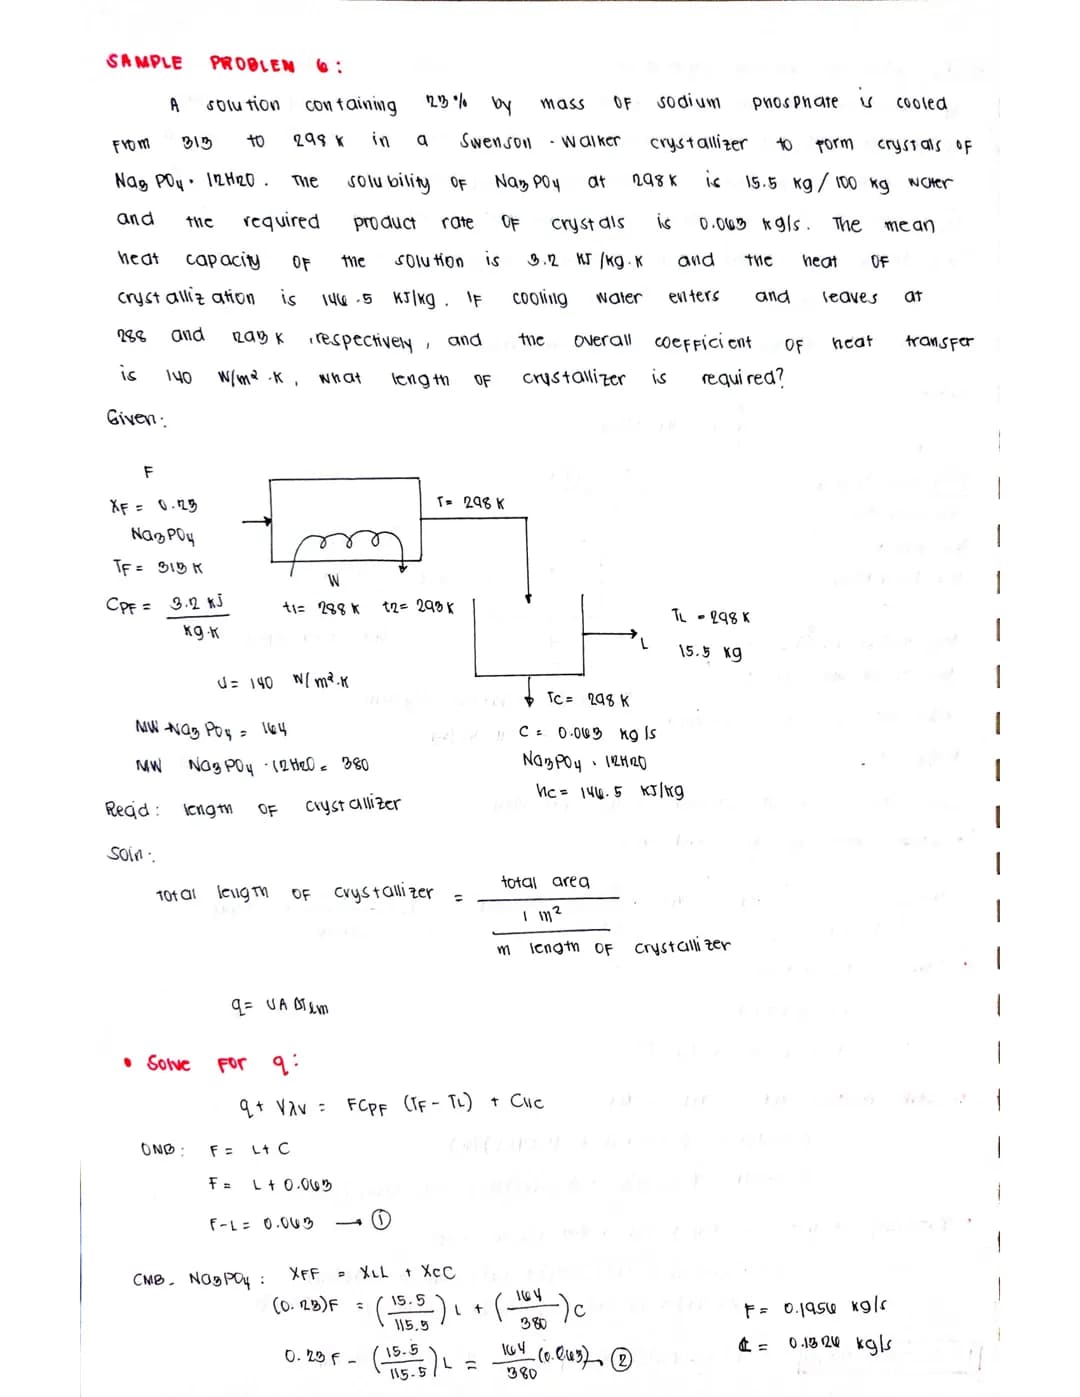 SAMPLE PROBLEM 6:
A solution containing 23% by mass of sodium phosphate is cooled
from 313 to 298 K in a Swenson-Walker crystallizer to form crystals of
Na3PO4 · 12H2O. The solubility of Na3PO4 at 298K is 15.5 kg/100 kg water
and the required product rate of crystals is 0.063 kg/s. The mean
heat capacity of the solution is 3.2 kJ/kg·K and the heat of
crystallization is 146.5 kJ/kg. If cooling water enters and leaves at
288 and 293 K, respectively, and the overall coefficient of heat transfer
is 140 W/m²·K, what length of crystallizer is required?
Given:
F
XF = 0.23
Na3PO4
TF = 313 K
CPF = 3.2 kJ / kg·K
T= 298 K
W
t1= 288 K t2= 293K
TL = 298 K
L
15.5 kg
U= 140 W/m²·K
TC= 298 K
C = 0.063 kg/s
Na3PO4 · 12H2O
Hc = 146.5 kJ/kg
MW Na3PO4 = 164
MW Na3PO4 · 12H2O = 380
Req'd: length of crystallizer
Soln:
Total length of crystallizer = total area / (1 m² / m length of crystallizer)
q= UAΔTlm
• Solve for q:
q + Vλv = FCPF (TF - TL) + CHc
OMB: F = L + C
F = L + 0.063
F-L = 0.063 → ①
CMB - Na3PO4: XFF = XLL + XCC
(0.23)F = (15.5/115.5) L + (164/380) C
0.23F - (15.5/115.5) L = 164/380 (0.063) → ②
F= 0.1956 kg/s
L = 0.1326 kg/s